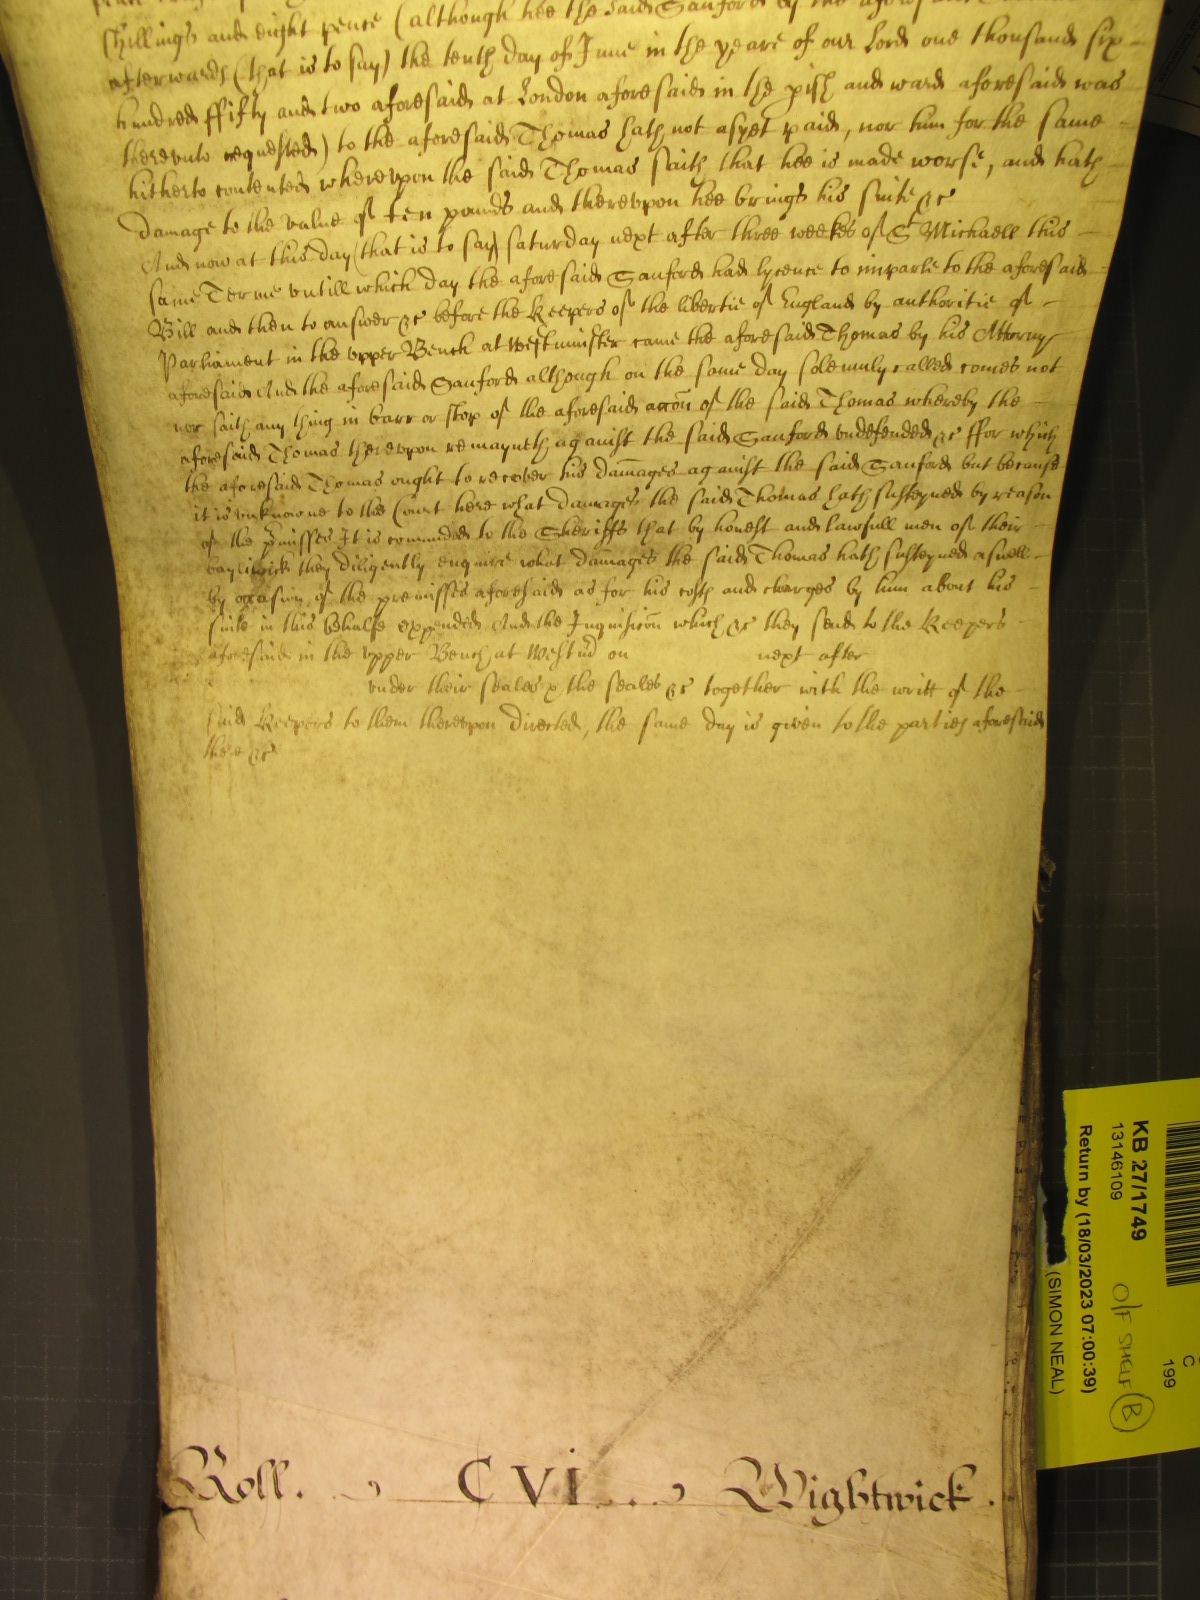 shillings and eight pence (although hee the said Sanford by the
afterwards (that is to say) the tenth day of June in the yeare of our Lord one thousand six
hundred ffifty and two aforesaid at London aforesaid in the pish and ward aforesaid was
therevnto requested) to the aforesaid Thomas hath not asyet paid, nor him for the same
hitherto contented wherevpon the said Thomas saith that hee is made worse, and hath
damage to the value of ten pounds and therevpon hee brings his suite &c
And now at this day (that is to say) saturday next after three weekes of St Michaell this
same Terme vntill which day the aforesaid Sanford had lycence to imparle to the aforesaid
Bill and then to answer &c before the Keepers of the libertie of England by authoritie of
Parliament in the vpper Bench at Westminster came the aforesaid Thomas by his Attorny
aforesaid And the aforesaid Sanford although on the same day solemnly called comes not
nor saith any thing in barr or stop of the aforesaid accon of the said Thomas whereby the
aforesaid Thomas therevpon remayneth against the said Sanford vndefended &c ffor which
the aforesaid Thomas ought to recover his damages against the said Sanford but because
it is vnknowne to the Court here what damages the said Thomas hath susteyned by reason
of the pmisses It is comanded to the Sheriffs that by honest and lawfull men of their
bayliwick they diligently enquire what damages the said Thomas hath susteyned aswell
by occasion of the premisses aforesaid as for his costs and charges by him about his
suite in this behalfe expended And the Inquisicon which &c they send to the Keepers
aforesaid in the vpper Bench at Westm on next after
vnder their seales & the seales &c together with the writt of the
said Keepers to them therevpon directed, the same day is given to the parties aforesaid
there &c
Roll. CVI. Wightwick.
KB 27/1749
13146109
Return by (18/03/2023 07:00:39)
(SIMON NEAL)
O/F SHELF B
C
199